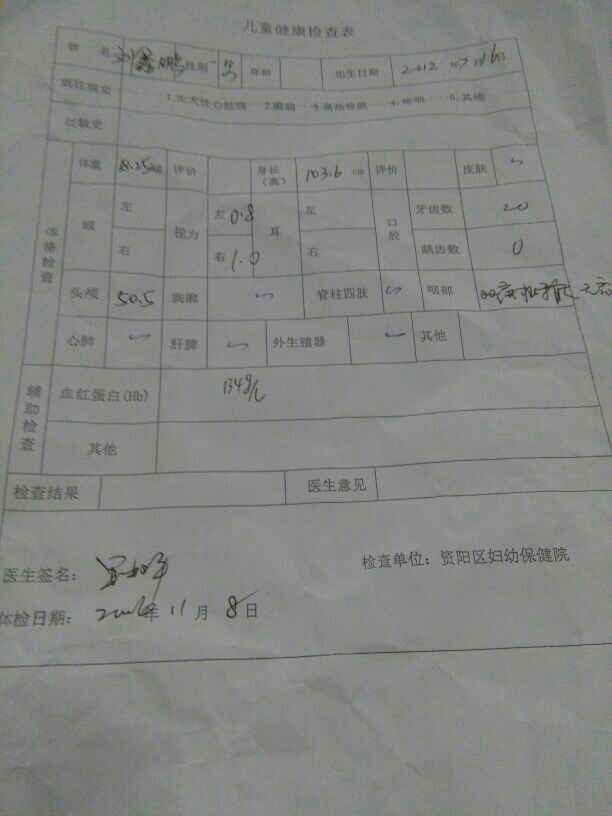 儿童健康检查表
姓名 刘鑫鹏 性别 男 年龄 出生日期 2012年7月16日
既往病史 1.先天性心脏病 2.癫痫 3.高热惊厥 4.哮喘 5.其他
过敏史
体格检查
体重 kg 评价 身长(高) 103.6 cm 评价 皮肤
眼 左 视力 左 0.8 耳 左 口腔 牙齿数 20
右 右 1.0 右 龋齿数 0
头颅 50.5 胸廓 脊柱四肢 咽部
心肺 肝脾 外生殖器 其他
辅助检查
血红蛋白(Hb) 134g/L
其他
检查结果 医生意见
医生签名: 检查单位：资阳区妇幼保健院
体检日期: 年 11 月 8 日